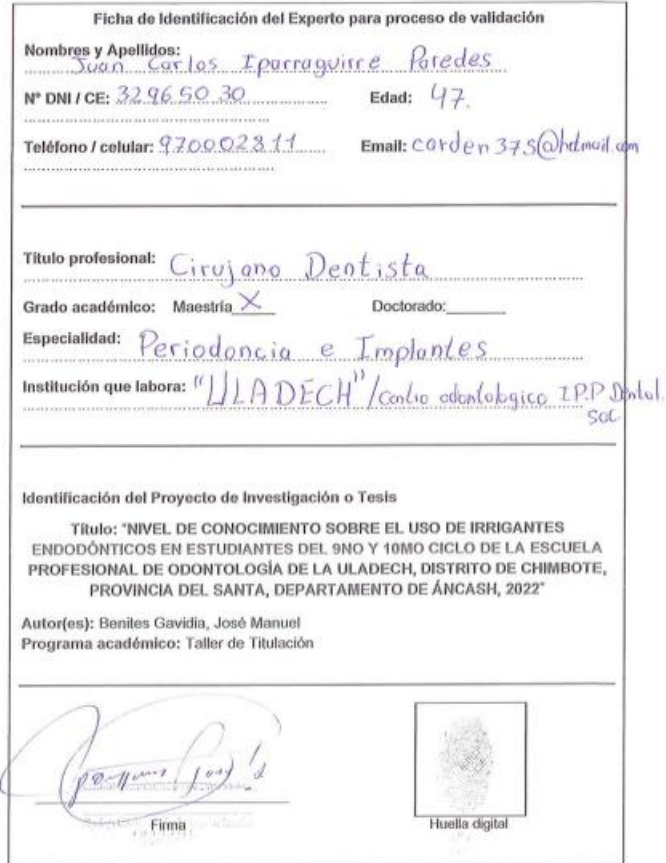 Ficha de Identificación del Experto para proceso de validación
Nombres y Apellidos:
Juan Carlos Iparraguirre Paredes
N° DNI / CE: 32965030 Edad: 47.
Teléfono / celular: 970002811 Email: carden375@hotmail.com
Título profesional: Cirujano Dentista
Grado académico: Maestría X Doctorado:
Especialidad: Periodoncia e Implantes
Institución que labora: "ULADECH" / Centro odontologico I.P.P Dental
SAC
Identificación del Proyecto de Investigación o Tesis
Título: "NIVEL DE CONOCIMIENTO SOBRE EL USO DE IRRIGANTES
ENDODÓNTICOS EN ESTUDIANTES DEL 9NO Y 10MO CICLO DE LA ESCUELA
PROFESIONAL DE ODONTOLOGÍA DE LA ULADECH, DISTRITO DE CHIMBOTE,
PROVINCIA DEL SANTA, DEPARTAMENTO DE ÁNCASH, 2022"
Autor(es): Benites Gavidia, José Manuel
Programa académico: Taller de Titulación
Firma Huella digital